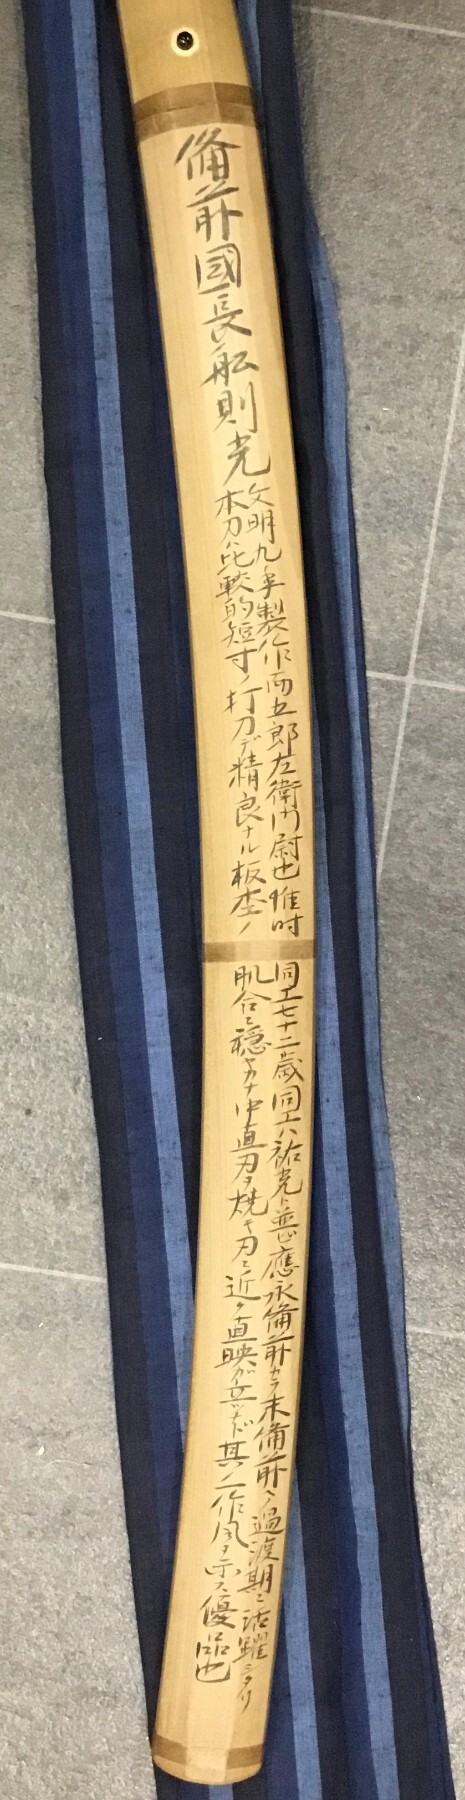 備前國長舩則光
文明九年製作而五郎左衛門尉也惟時同工七十二歳同工ハ祐光ト並ビ應永備前カラ末備前ヘノ過渡期ニ活躍シタリ
本刀ハ比較的短寸ノ打刀デ精良ナル板杢ノ肌合ニ穏ヤカナ中直刃ヲ焼キ刃ニ近ク直映ガ立ツナド其ノ作風ヲ示ス優品也